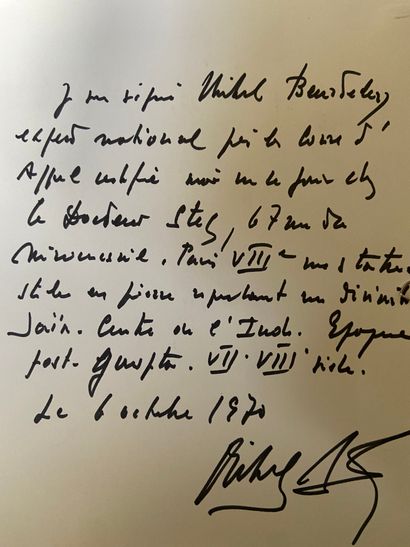 Je soussigné Michel Beurdeley
expert national près la Cour d'
Appel certifie avoir vu ce jour chez
le Docteur Steg, 67 rue de
Miromesnil. Paris VIIIe une statue
stèle en pierre représentant une divinité
Jaïn. Centre de l'Inde. Epoque
post-Gupta. VII-VIII siècle.
Le 6 octobre 1970